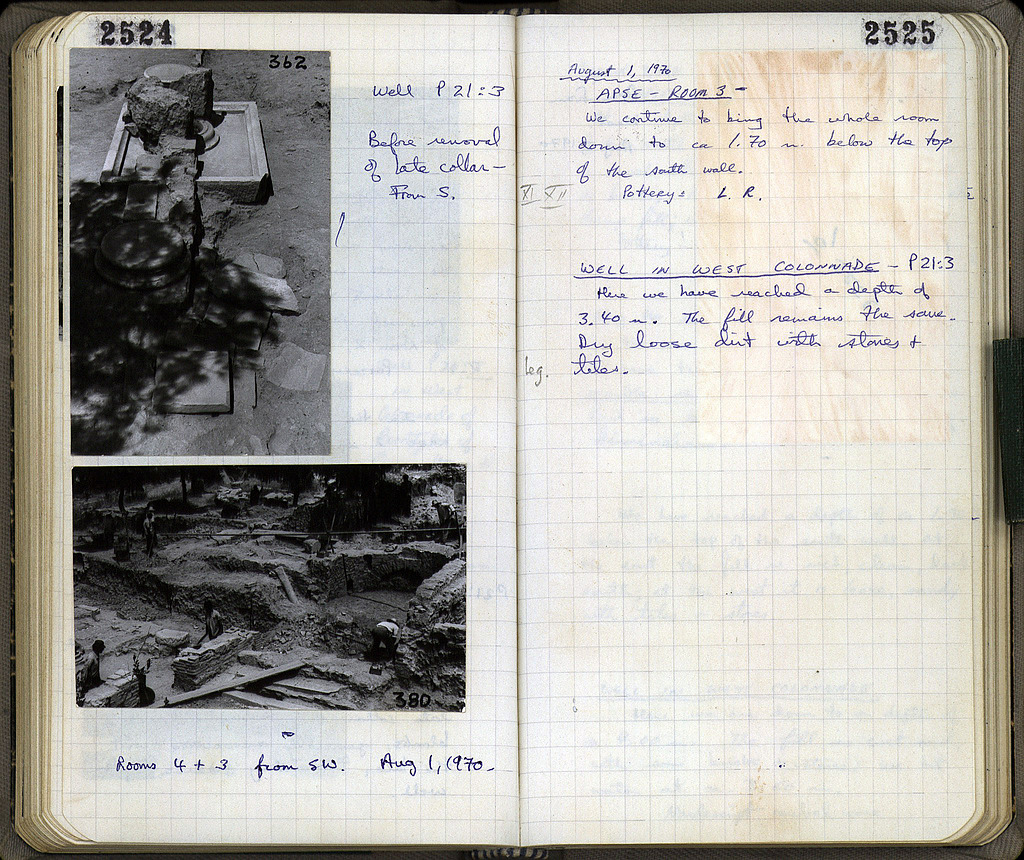 2524
362
Well P 21:3
Before removal
of late collar —
From S.
380
Rooms 4 + 3 from SW. Aug 1, 1970 -
2525
August 1, 1970
APSE - ROOM 3 -
We continue to bring the whole room
down to ca 1.70 m. below the top
of the south wall.
XI XII Pottery: L. R.
WELL IN WEST COLONNADE - P 21:3
Here we have reached a depth of
3.40 m. The fill remains the same.
Dry loose dirt with stones +
leg. tiles.